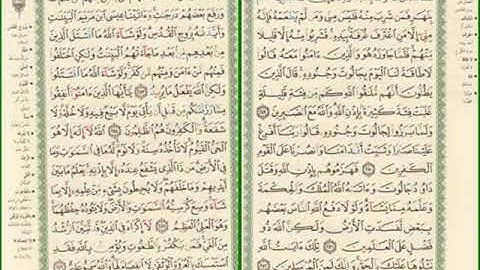 بِنَهَرٍ فَمَن شَرِبَ مِنْهُ فَلَيْسَ مِنِّي وَمَن لَّمْ يَطْعَمْهُ فَإِنَّهُۥ
مِنِّيٓ إِلَّا مَنِ ٱغْتَرَفَ غُرْفَةًۢ بِيَدِهِۦ فَشَرِبُوا۟ مِنْهُ إِلَّا قَلِيلًا
مِّنْهُمْ فَلَمَّا جَاوَزَهُۥ هُوَ وَٱلَّذِينَ ءَامَنُوا۟ مَعَهُۥ قَالُوا۟
لَا طَاقَةَ لَنَا ٱلْيَوْمَ بِجَالُوتَ وَجُنُودِهِۦ قَالَ ٱلَّذِينَ
يَظُنُّونَ أَنَّهُم مُّلَٰقُوا۟ ٱللَّهِ كَم مِّن فِئَةٍ قَلِيلَةٍ
غَلَبَتْ فِئَةً كَثِيرَةًۢ بِإِذْنِ ٱللَّهِ وَٱللَّهُ مَعَ ٱلصَّٰبِرِينَ
٢٤٩ وَلَمَّا بَرَزُوا۟ لِجَالُوتَ وَجُنُودِهِۦ قَالُوا۟ رَبَّنَآ أَفْرِغْ
عَلَيْنَا صَبْرًا وَثَبِّتْ أَقْدَامَنَا وَٱنصُرْنَا عَلَى ٱلْقَوْمِ
ٱلْكَٰفِرِينَ ٢٥٠ فَهَزَمُوهُم بِإِذْنِ ٱللَّهِ وَقَتَلَ
دَاوُۥدُ جَالُوتَ وَءَاتَىٰهُ ٱللَّهُ ٱلْمُلْكَ وَٱلْحِكْمَةَ
وَعَلَّمَهُۥ مِمَّا يَشَآءُ وَلَوْلَا دَفْعُ ٱللَّهِ ٱلنَّاسَ بَعْضَهُم
بِبَعْضٍ لَّفَسَدَتِ ٱلْأَرْضُ وَلَٰكِنَّ ٱللَّهَ ذُو
فَضْلٍ عَلَى ٱلْعَٰلَمِينَ ٢٥١ تِلْكَ ءَايَٰتُ ٱللَّهِ
وَرَفَعَ بَعْضَهُمْ دَرَجَٰتٍ وَءَاتَيْنَا عِيسَى ٱبْنَ مَرْيَمَ ٱلْبَيِّنَٰتِ
وَأَيَّدْنَٰهُ بِرُوحِ ٱلْقُدُسِ وَلَوْ شَآءَ ٱللَّهُ مَا ٱقْتَتَلَ ٱلَّذِينَ
مِنۢ بَعْدِهِم مِّنۢ بَعْدِ مَا جَآءَتْهُمُ ٱلْبَيِّنَٰتُ وَلَٰكِنِ ٱخْتَلَفُوا۟
فَمِنْهُم مَّنْ ءَامَنَ وَمِنْهُم مَّن كَفَرَ وَلَوْ شَآءَ ٱللَّهُ مَا ٱقْتَتَلُوا۟
وَلَٰكِنَّ ٱللَّهَ يَفْعَلُ مَا يُرِيدُ ٢٥٣ يَٰٓأَيُّهَا ٱلَّذِينَ ءَامَنُوٓا۟ أَنفِقُوا۟
مِمَّا رَزَقْنَٰكُم مِّن قَبْلِ أَن يَأْتِيَ يَوْمٌ لَّا بَيْعٌ فِيهِ وَلَا خُلَّةٌ وَلَا
شَفَٰعَةٌ وَٱلْكَٰفِرُونَ هُمُ ٱلظَّٰلِمُونَ ٢٥٤ ٱللَّهُ لَآ إِلَٰهَ إِلَّا هُوَ
ٱلْحَيُّ ٱلْقَيُّومُ لَا تَأْخُذُهُۥ سِنَةٌ وَلَا نَوْمٌ لَّهُۥ مَا فِي ٱلسَّمَٰوَٰتِ وَمَا
فِي ٱلْأَرْضِ مَن ذَا ٱلَّذِي يَشْفَعُ عِندَهُۥٓ إِلَّا بِإِذْنِهِۦ يَعْلَمُ مَا بَيْنَ
أَيْدِيهِمْ وَمَا خَلْفَهُمْ وَلَا يُحِيطُونَ بِشَيْءٍ مِّنْ عِلْمِهِۦٓ إِلَّا بِمَا
شَآءَ وَسِعَ كُرْسِيُّهُ ٱلسَّمَٰوَٰتِ وَٱلْأَرْضَ وَلَا يَـُٔودُهُۥ حِفْظُهُمَا
وَهُوَ ٱلْعَلِيُّ ٱلْعَظِيمُ ٢٥٥ لَآ إِكْرَاهَ فِي ٱلدِّينِ قَد تَّبَيَّنَ ٱلرُّشْدُ
مِنَ ٱلْغَيِّ فَمَن يَكْفُرْ بِٱلطَّٰغُوتِ وَيُؤْمِنۢ بِٱللَّهِ فَقَدِ
ٱسْتَمْسَكَ بِٱلْعُرْوَةِ ٱلْوُثْقَىٰ لَا ٱنفِصَامَ لَهَا وَٱللَّهُ سَمِيعٌ عَلِيمٌ